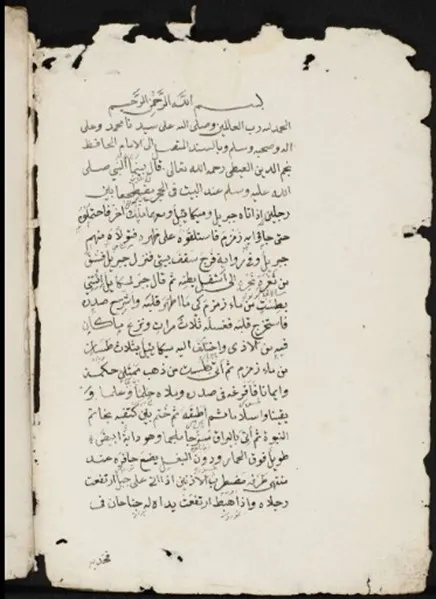 بسم الله الرحمن الرحيم
الحمد لله رب العالمين وصلى الله على سيدنا محمد وعلى
اله وصحبه وسلم وبالسند المتصل الى الامام الحافظ
نجم الدين الغيطي رحمه الله تعالى قال بينما النبي صلى
الله عليه وسلم عند البيت في الحجر مضطجعا بين
رجلين اذ اتاه جبريل وميكائيل ومعهما ملك اخر فاحتملوه
حتى جاؤا به زمزم فاستلقوه على ظهره فتولاه منهم
جبريل وفي رواية فرج سقف بيتي فنزل جبريل فشق
من ثغرة نحره الى اسفل بطنه ثم قال جبريل لميكائيل ائتني
بطست من ماء زمزم كي ما اطهر قلبه واشرح صدره
فاستخرج قلبه فغسله ثلاث مرات ونزع ما كان
فيه من الاذى واختلف اليه ميكائيل بثلاث طسات
من ماء زمزم ثم اتى بطست من ذهب ممتلئ حكمة
وايمانا فافرغه في صدره وملاه حلما وعلما و
يقينا واسلاما ثم اطبقه ثم ختم بين كتفيه بخاتم
النبوة ثم اتى بالبراق مسرجا ملجما وهو دابة ابيض
طويل فوق الحمار ودون البغل يضع حافره عند
منتهى طرفه مضطرب الاذنين اذا اتى على جبل ارتفعت
رجلاه واذا هبط ارتفعت يداه له جناحان في
فخذيه